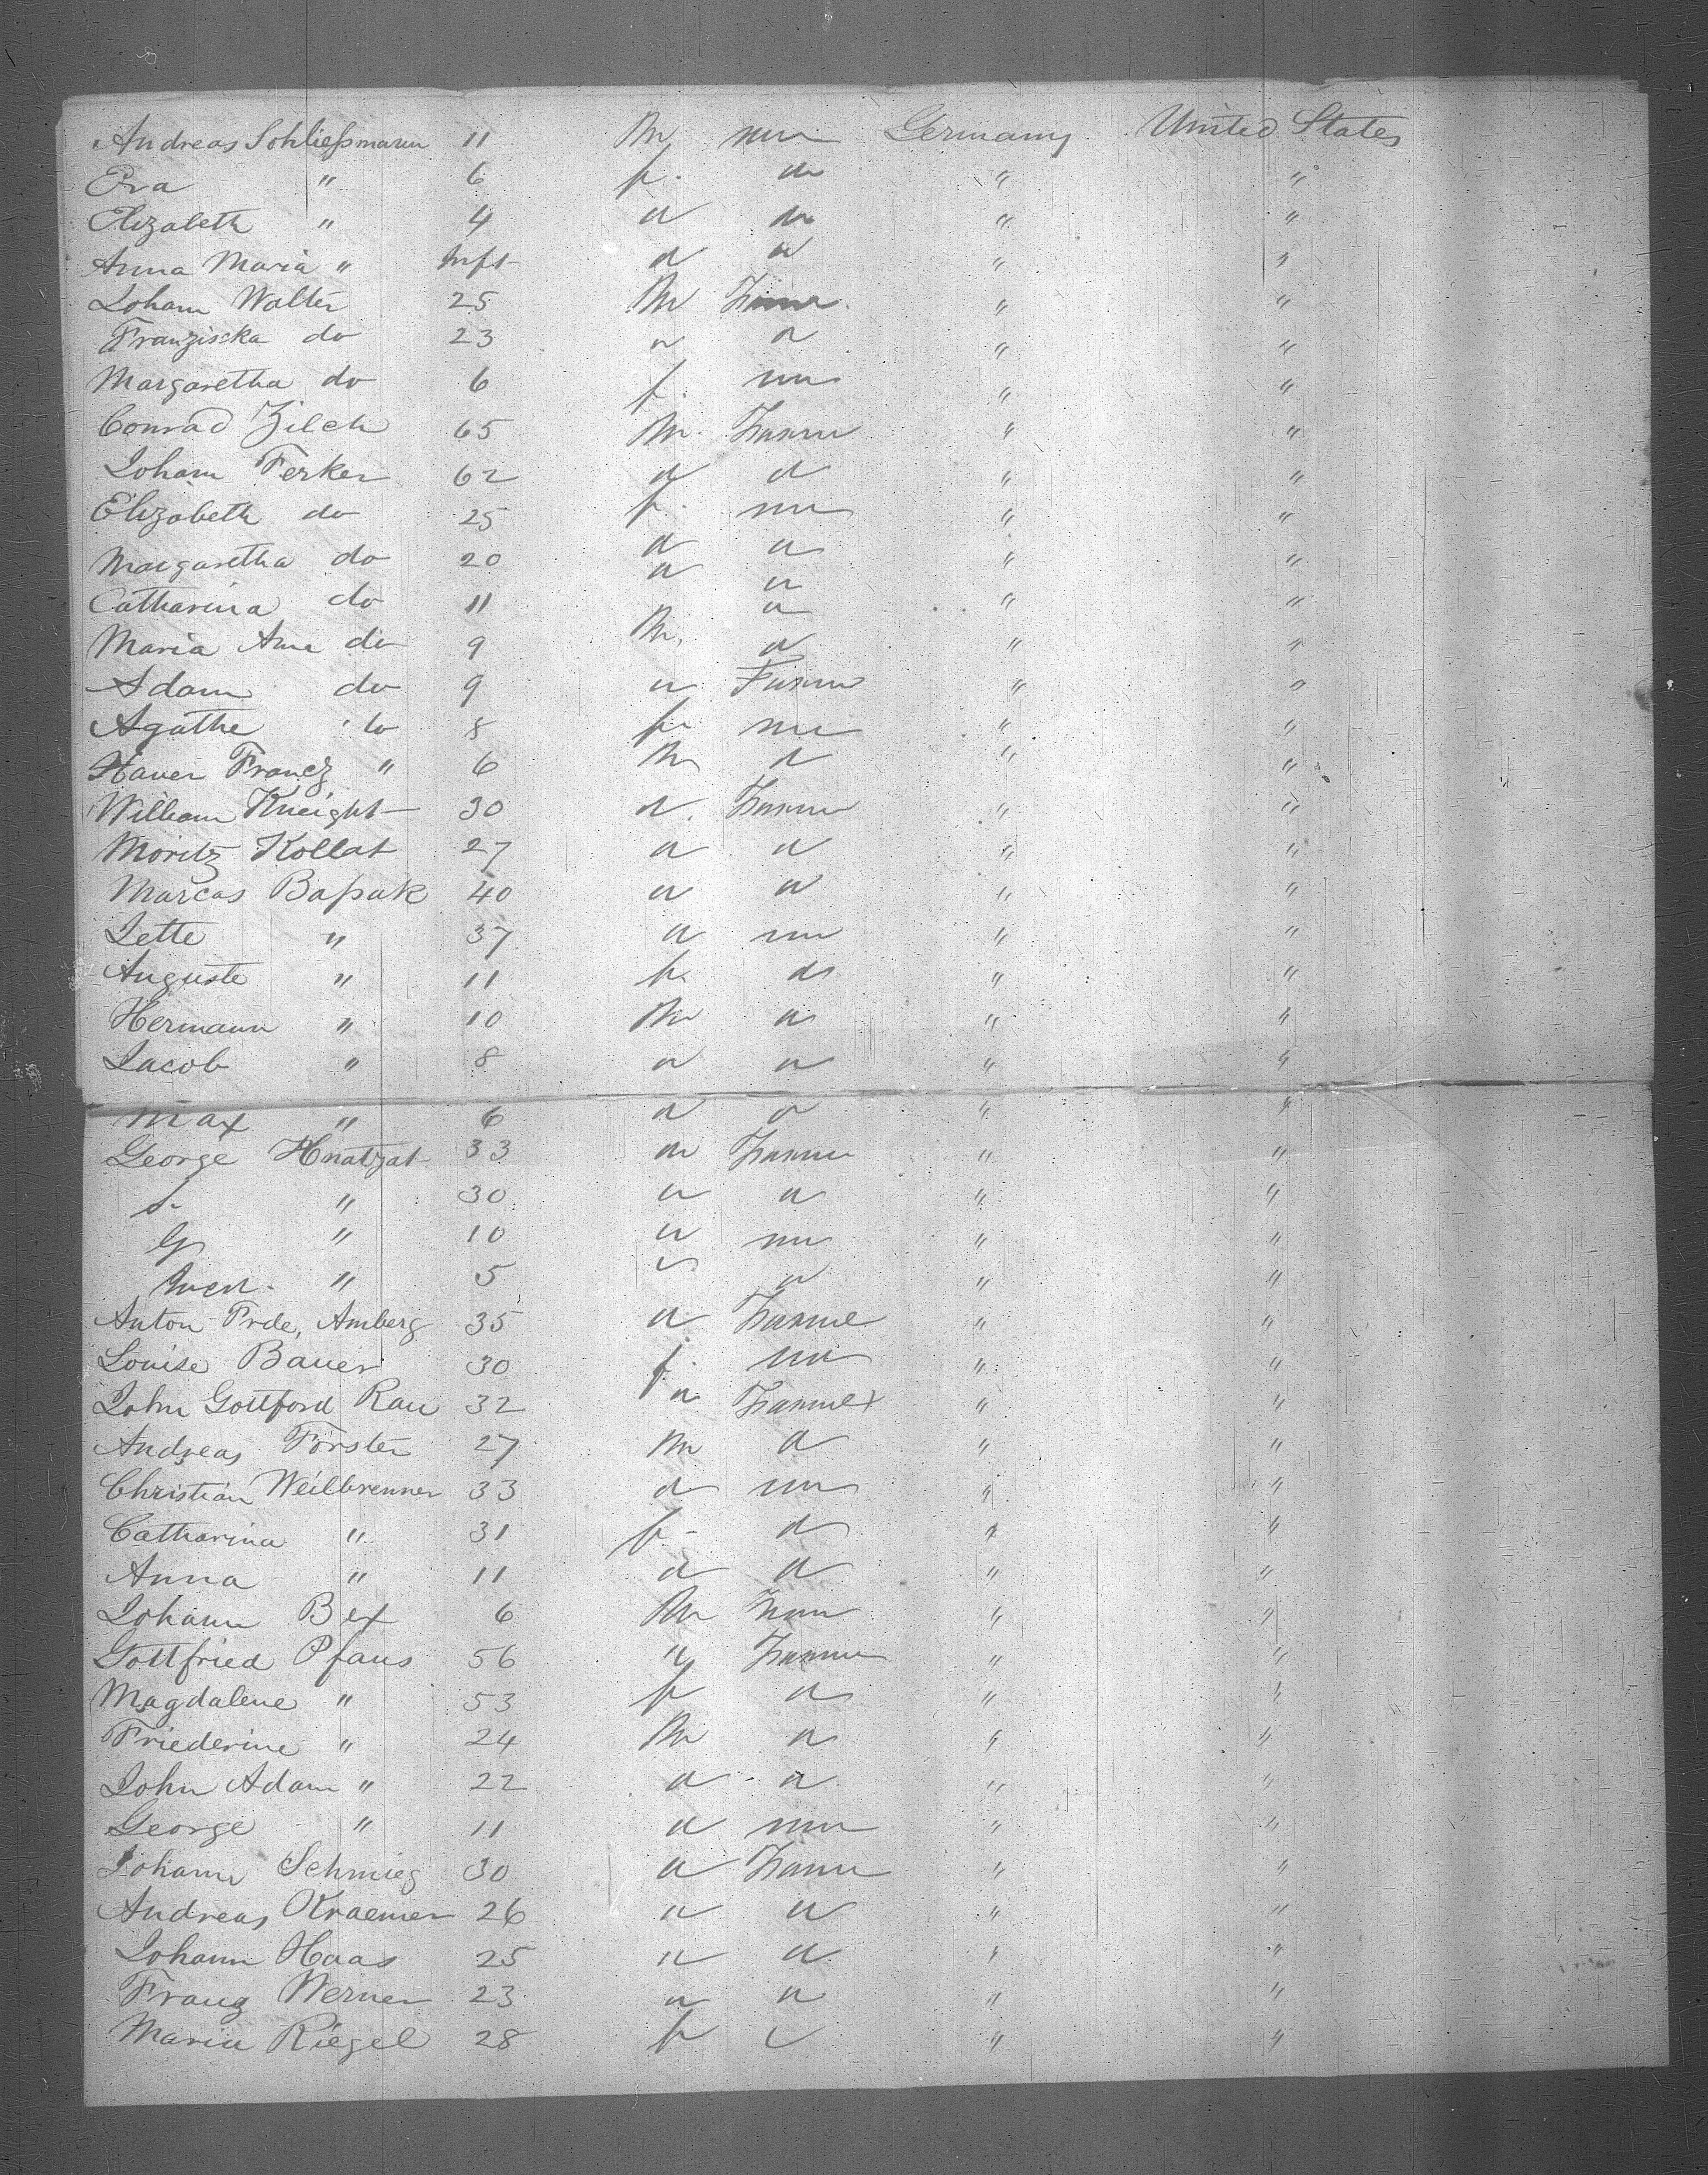 Andreas Schließmann 11 m none Germany United States
Eva " 6 f. do " "
Elizabeth " 4 do do " "
Anna Maria " Inft do do " "
Joham Walter 25 m Farmer " "
Franziscka do 23 " " " "
Margaretha do 6 f. none " "
Conrad Zilch 65 m. Farmer " "
Joham Ferker 62 do do " "
Elizabeth do 25 f. none " "
Margaretha do 20 do do " "
Catharina do 11 do do " "
Maria Anna do 9 m. do " "
Adam do 9 " Farmer " "
Agathe do 8 f none " "
Xaver Francz " 6 m do " "
William Kneight 30 do. Farmer " "
Moritz Kollat 27 do do " "
Marcas Baßak 40 do do " "
Jette " 37 do none " "
Auguste " 11 f. do " "
Hermann " 10 m do " "
Jacob " 8 do do " "
Max " 6 do do " "
George Hnatzat 33 do Farmer " "
" 30 do do " "
G " 10 do none " "
" 5 " do " "
Anton Frde, Amberg 35 do Farmer " "
Louise Bauer 30 f. none " "
John Gottford Rau 32 " Farmer " "
Andreas Förster 27 m do " "
Christian Weilbrenner 33 do none " "
Catharina " 31 f. do " "
Anna " 11 do do " "
Johann Bex 6 m none " "
Gottfried Pfaus 56 " Farmer " "
Magdalene " 53 f do " "
Friederine " 24 m do " "
John Adam " 22 do do " "
George " 11 do none " "
Johann Schmieg 30 do Farmer " "
Andreas Kraemer 26 do do " "
Johann Haas 25 " do " "
Franz Werner 23 do do " "
Maria Riegel 28 f " " "